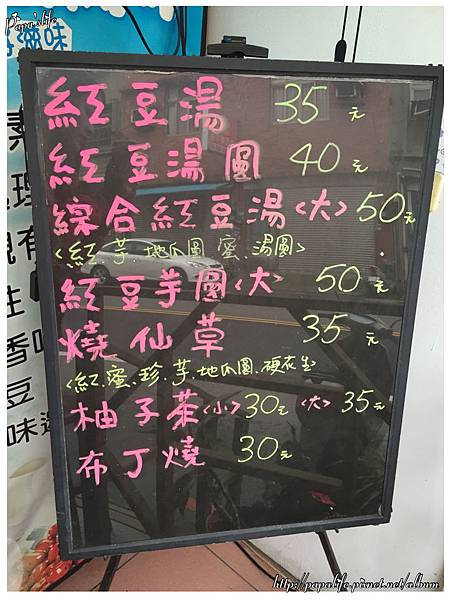 Papa'slife
紅豆湯 35元
紅豆湯圓 40元
綜合紅豆湯<大>50元
<紅.芋.地瓜圓.蜜.湯圓>
紅豆芋圓<大> 50元
燒仙草 35元
<紅.蜜.珍.芋.地瓜圓.硬花生>
柚子茶<小>30元 <大>35元
布丁燒 30元
http://papalife.pixnet.net/album